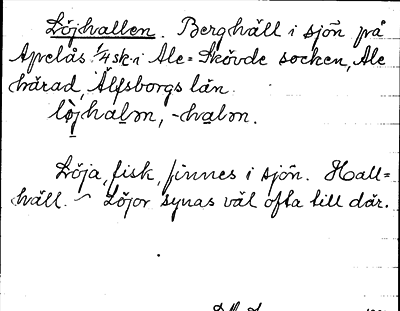 Löjhallen. Berghäll i sjön på
Apelås 1/4 sk. i Ale-Skövde socken, Ale
härad, Älfsborgs län.
löjhalən, -halən.
Löja, fisk, finnes i sjön. Hall=
häll. ~ Löjor synas väl ofta till där.